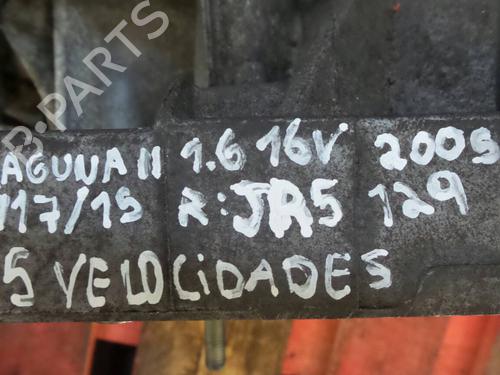 B-PARTS
AGUNA II 1.6 16V 2005
117/15 R:JR5 129
5 VELOCIDADES